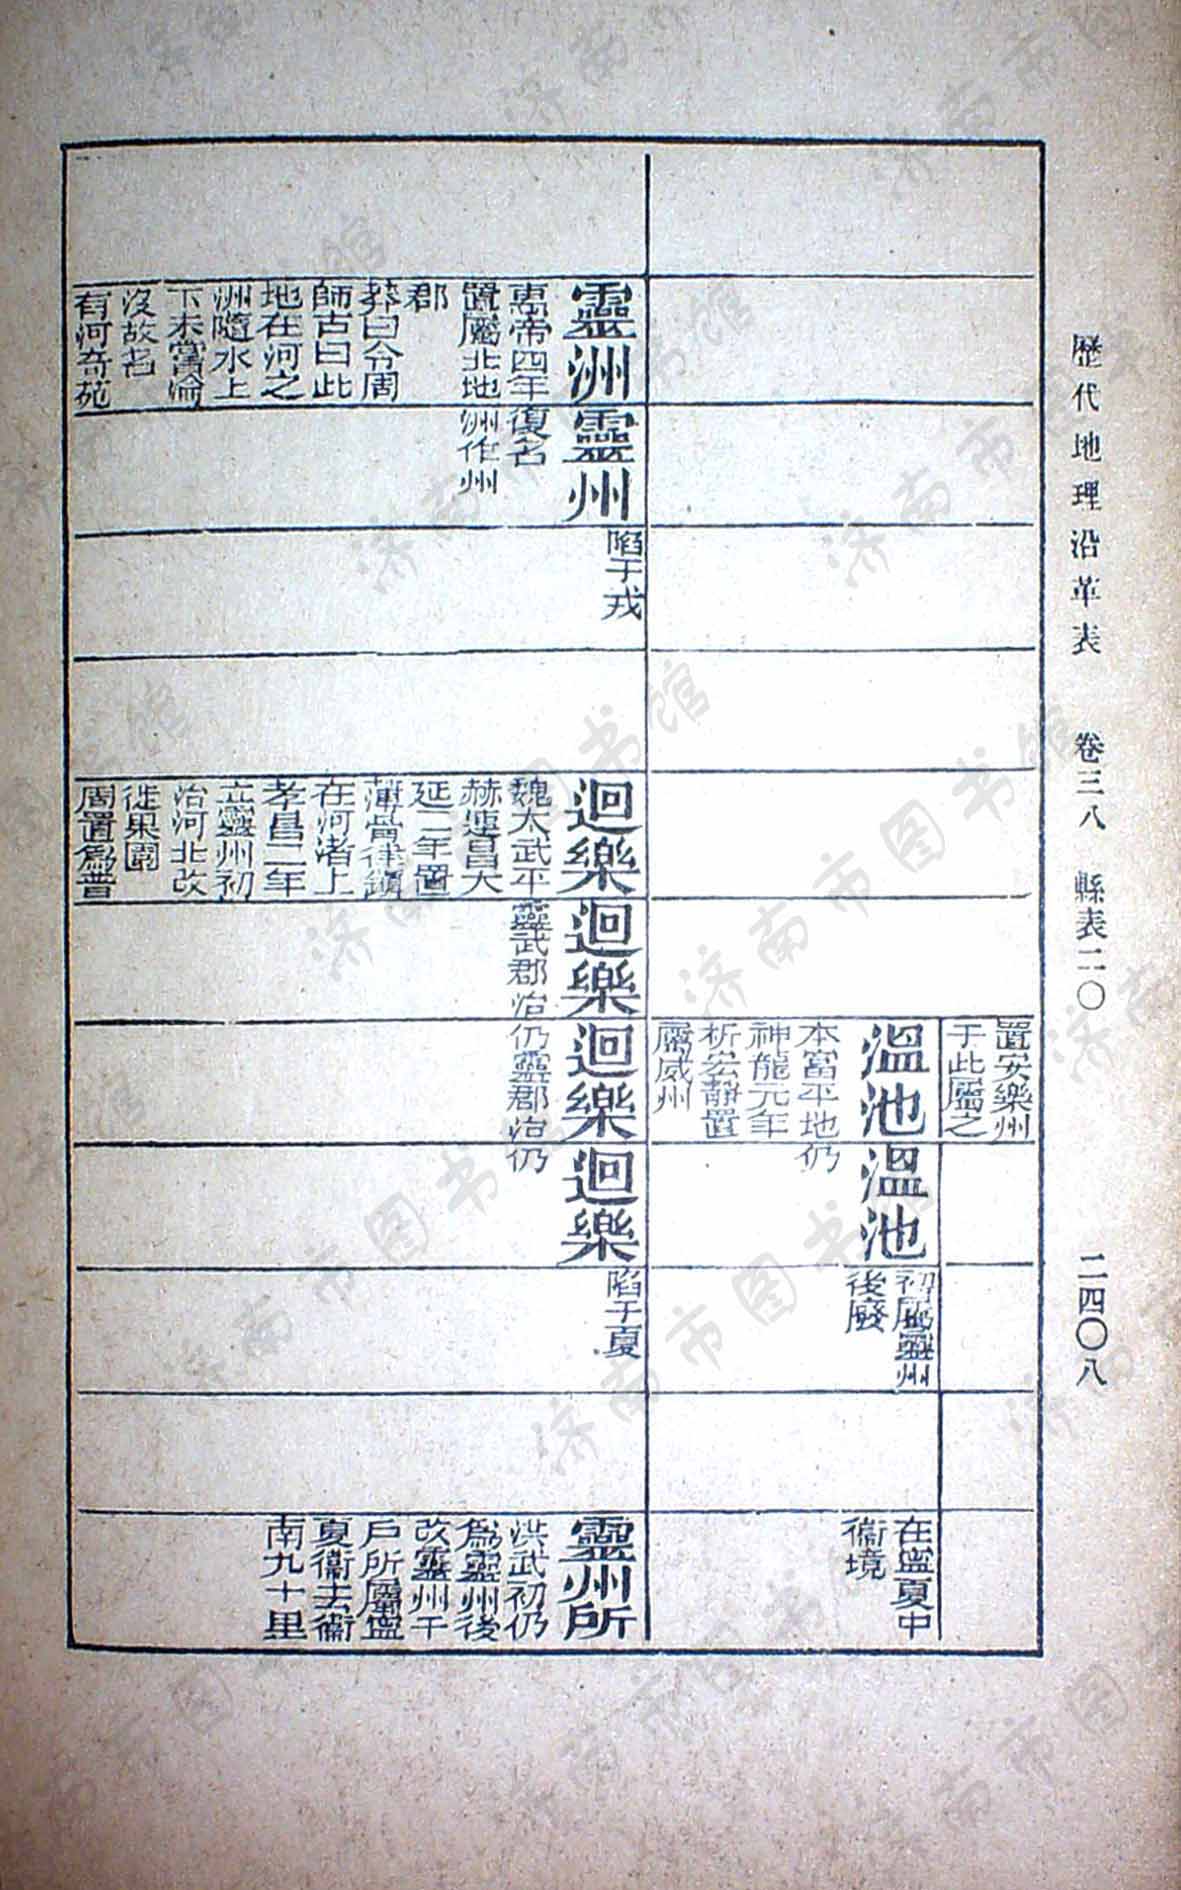 歷代地理沿革表　卷三八　縣表二〇　二四〇八
置安樂州
于此屬之
溫池
本富平地
神龍元年
析宏靜置
屬威州
溫池
仍
初屬靈州
後廢
在寧夏中
衞境
靈洲
惠帝四年
置屬北地
郡
莽曰令周
師古曰此
地在河之
洲隨水上
下未嘗淪
沒故名
有河奇苑
靈州
復名
洲作州
陷于戎
迴樂
魏太武平
赫連昌大
延二年置
薄骨律鎮
在河渚上
孝昌二年
立靈州初
治河北改
徙果園
周置爲普
迴樂
靈武郡治
迴樂
仍靈郡治
迴樂
仍
陷于夏
靈州所
洪武初仍
爲靈州後
改靈州千
戶所屬寧
夏衞去衞
南九十里
济南市图书馆